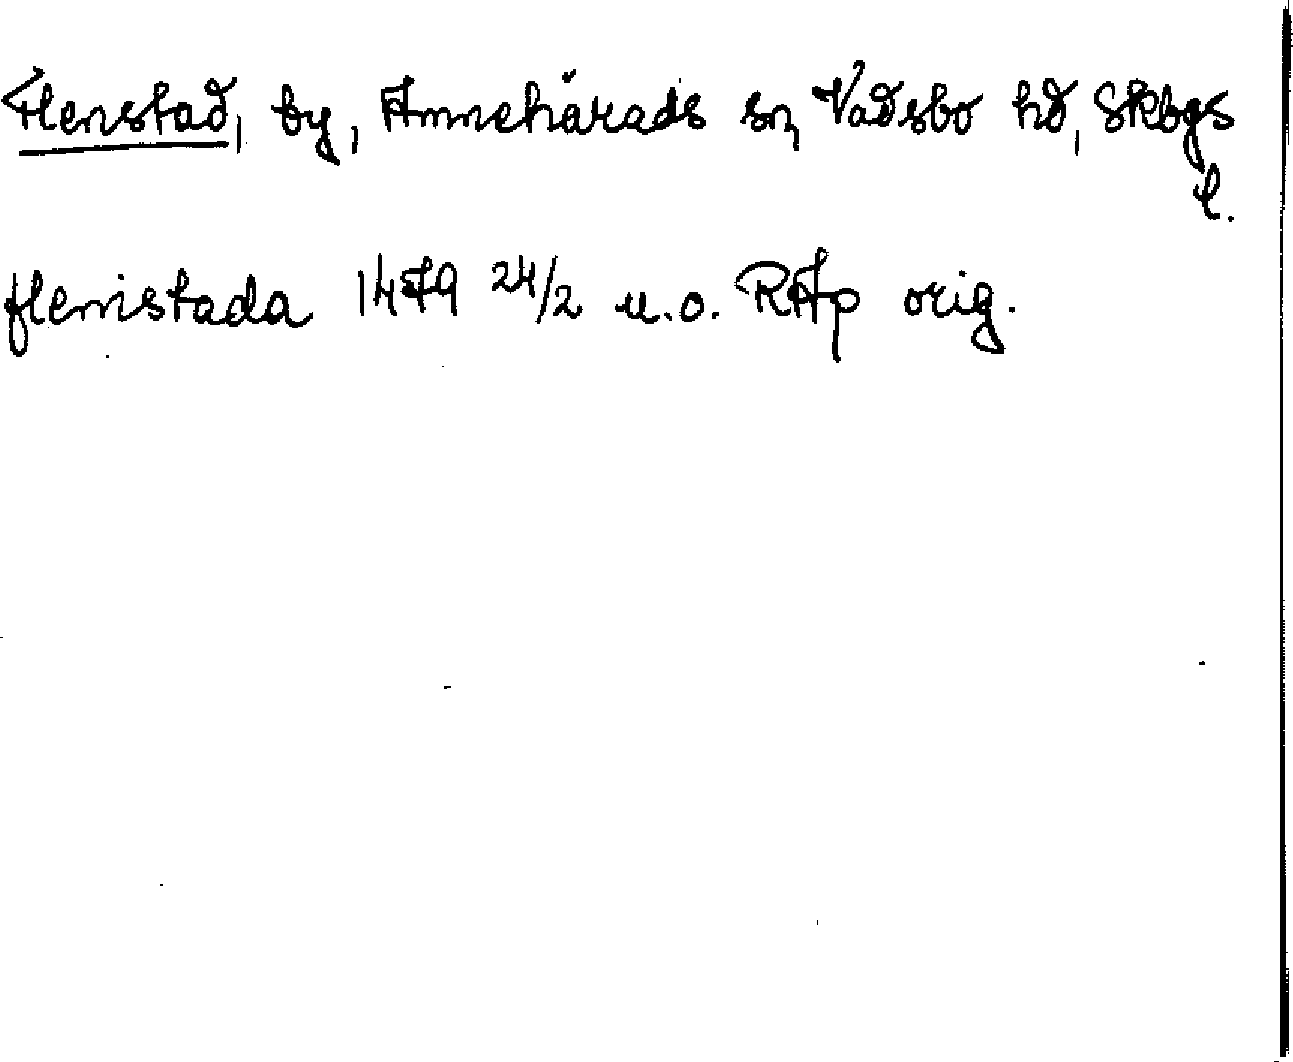 Flenstad, by, Amnehärads sn, Vadsbo hd, Skbgs
l.
flenistada 1479 24/2 u.o. RAp orig.